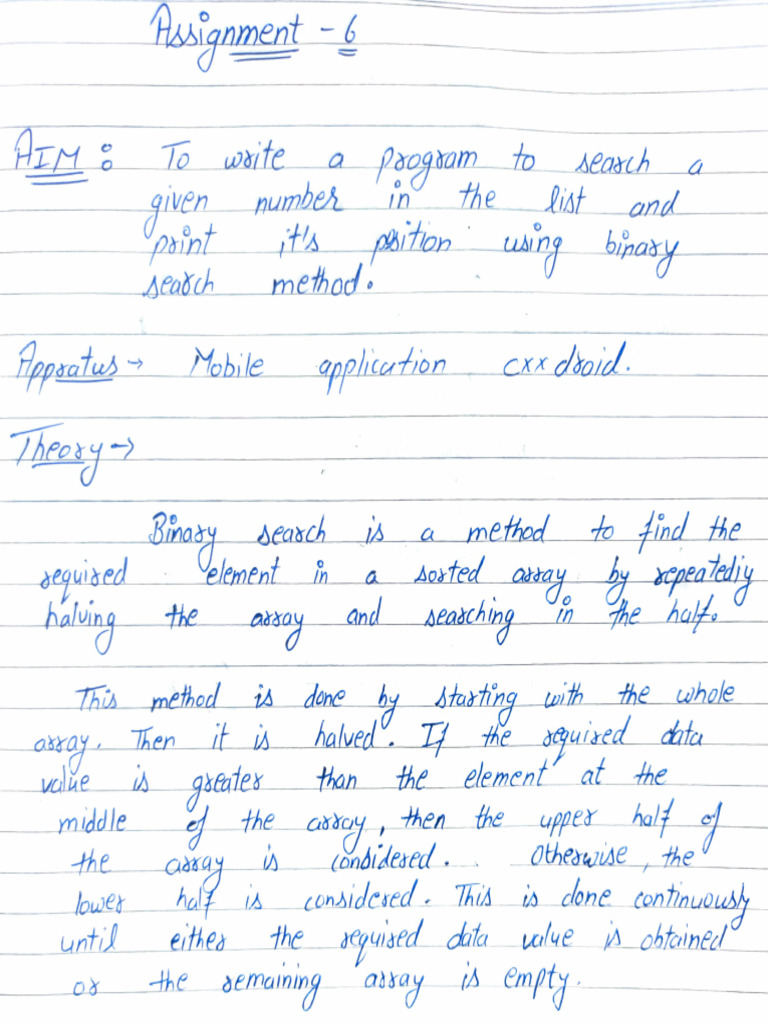 Assignment - 6
AIM : To write a program to search a
given number in the list and
print it's position using binary
search method.
Appratus → Mobile application cxxdroid.
Theory →
Binary search is a method to find the
required element in a sorted array by repeatediy
halving the array and searching in the half.
This method is done by starting with the whole
array. Then it is halved. If the required data
value is greater than the element at the
middle of the array, then the upper half of
the array is considered. Otherwise, the
lower half is considered. This is done continuously
until either the required data value is obtained
or the remaining array is empty.